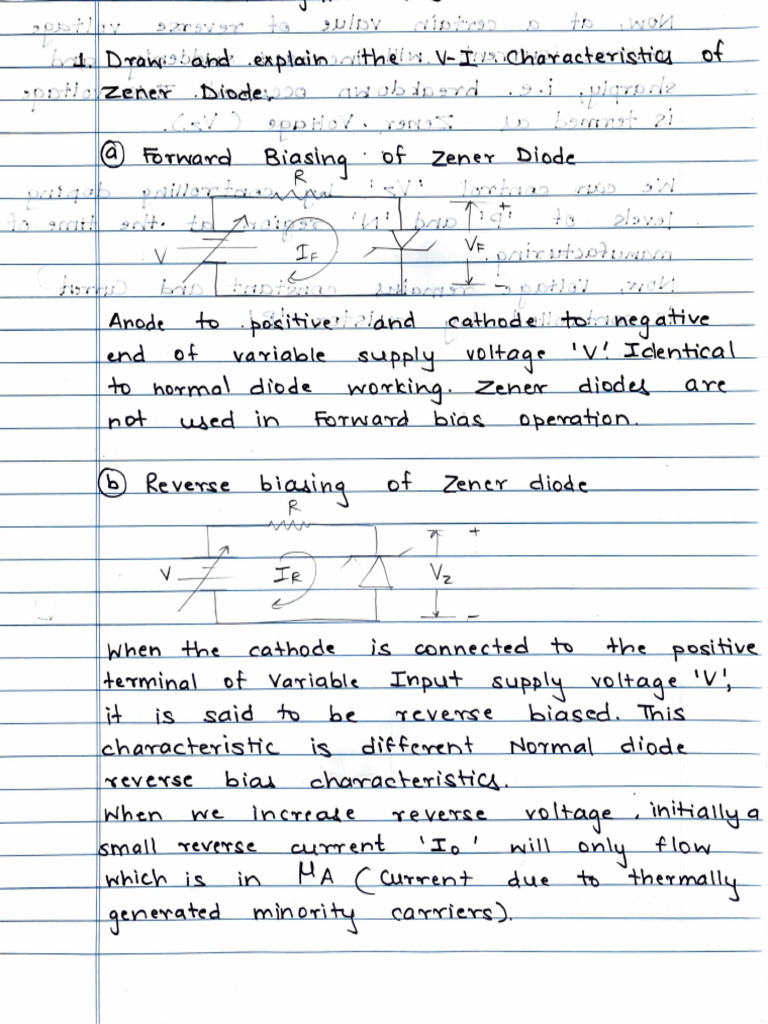 1. Draw and explain the V-I Characteristics of
Zener Diode.
ⓐ Forward Biasing of Zener Diode
R
+
V
IF
VF
-
Anode to positive and cathode to negative
end of variable supply voltage 'V'. Identical
to normal diode working. Zener diodes are
not used in Forward bias operation.
ⓑ Reverse biasing of Zener diode
R
+
V
IR
VZ
-
When the cathode is connected to the positive
terminal of Variable Input supply voltage 'V',
it is said to be reverse biased. This
characteristic is different Normal diode
reverse bias characteristics.
When we increase reverse voltage, initially a
small reverse current 'Io' will only flow
which is in μA (Current due to thermally
generated minority carriers).